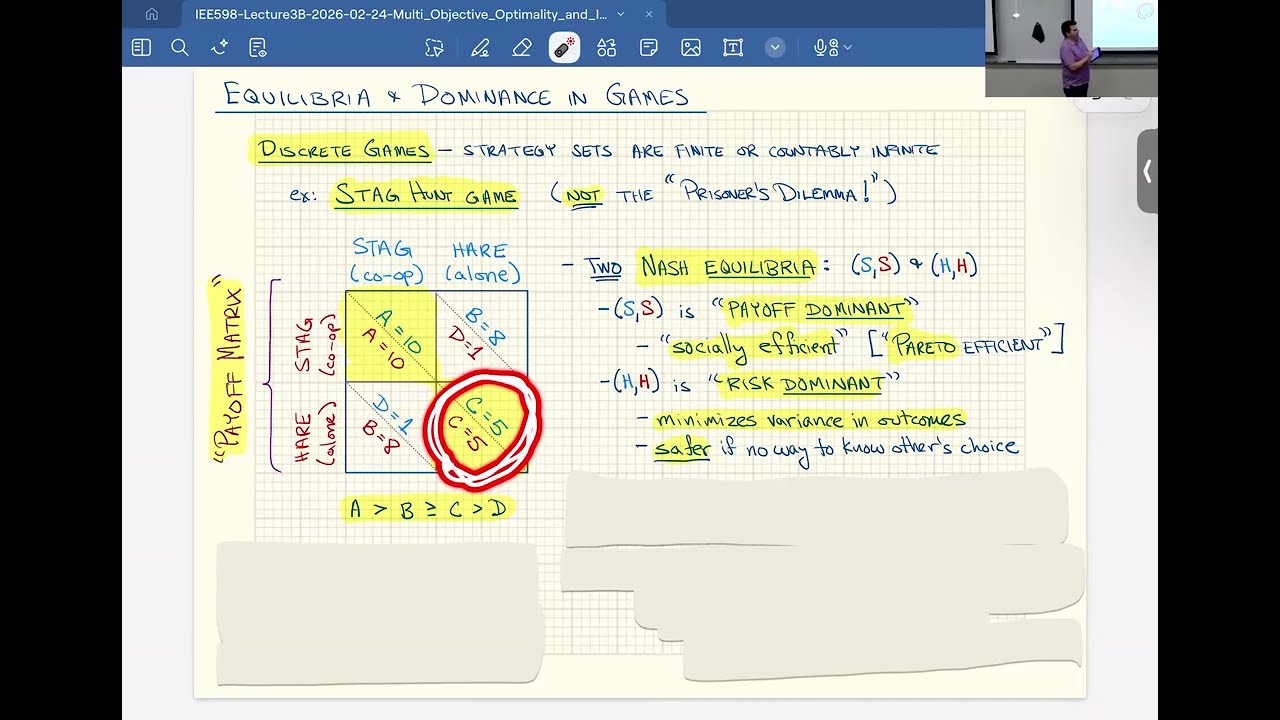 IEE598-Lecture3B-2026-02-24-Multi_Objective_Optimality_and_I...
EQUILIBRIA & DOMINANCE IN GAMES
DISCRETE GAMES - STRATEGY SETS ARE FINITE OR COUNTABLY INFINITE
ex: STAG HUNT GAME (NOT THE "PRISONER'S DILEMMA!")
STAG HARE
(co-op) (alone)
"PAYOFF MATRIX"
STAG (co-op)
A=10
A=10
B=8
D=1
HARE (alone)
D=1
B=8
C=5
C=5
A > B ≥ C > D
- TWO NASH EQUILIBRIA: (S,S) & (H,H)
- (S,S) is "PAYOFF DOMINANT"
- "socially efficient" ["PARETO EFFICIENT"]
- (H,H) is "RISK DOMINANT"
- minimizes variance in outcomes
- safer if no way to know other's choice